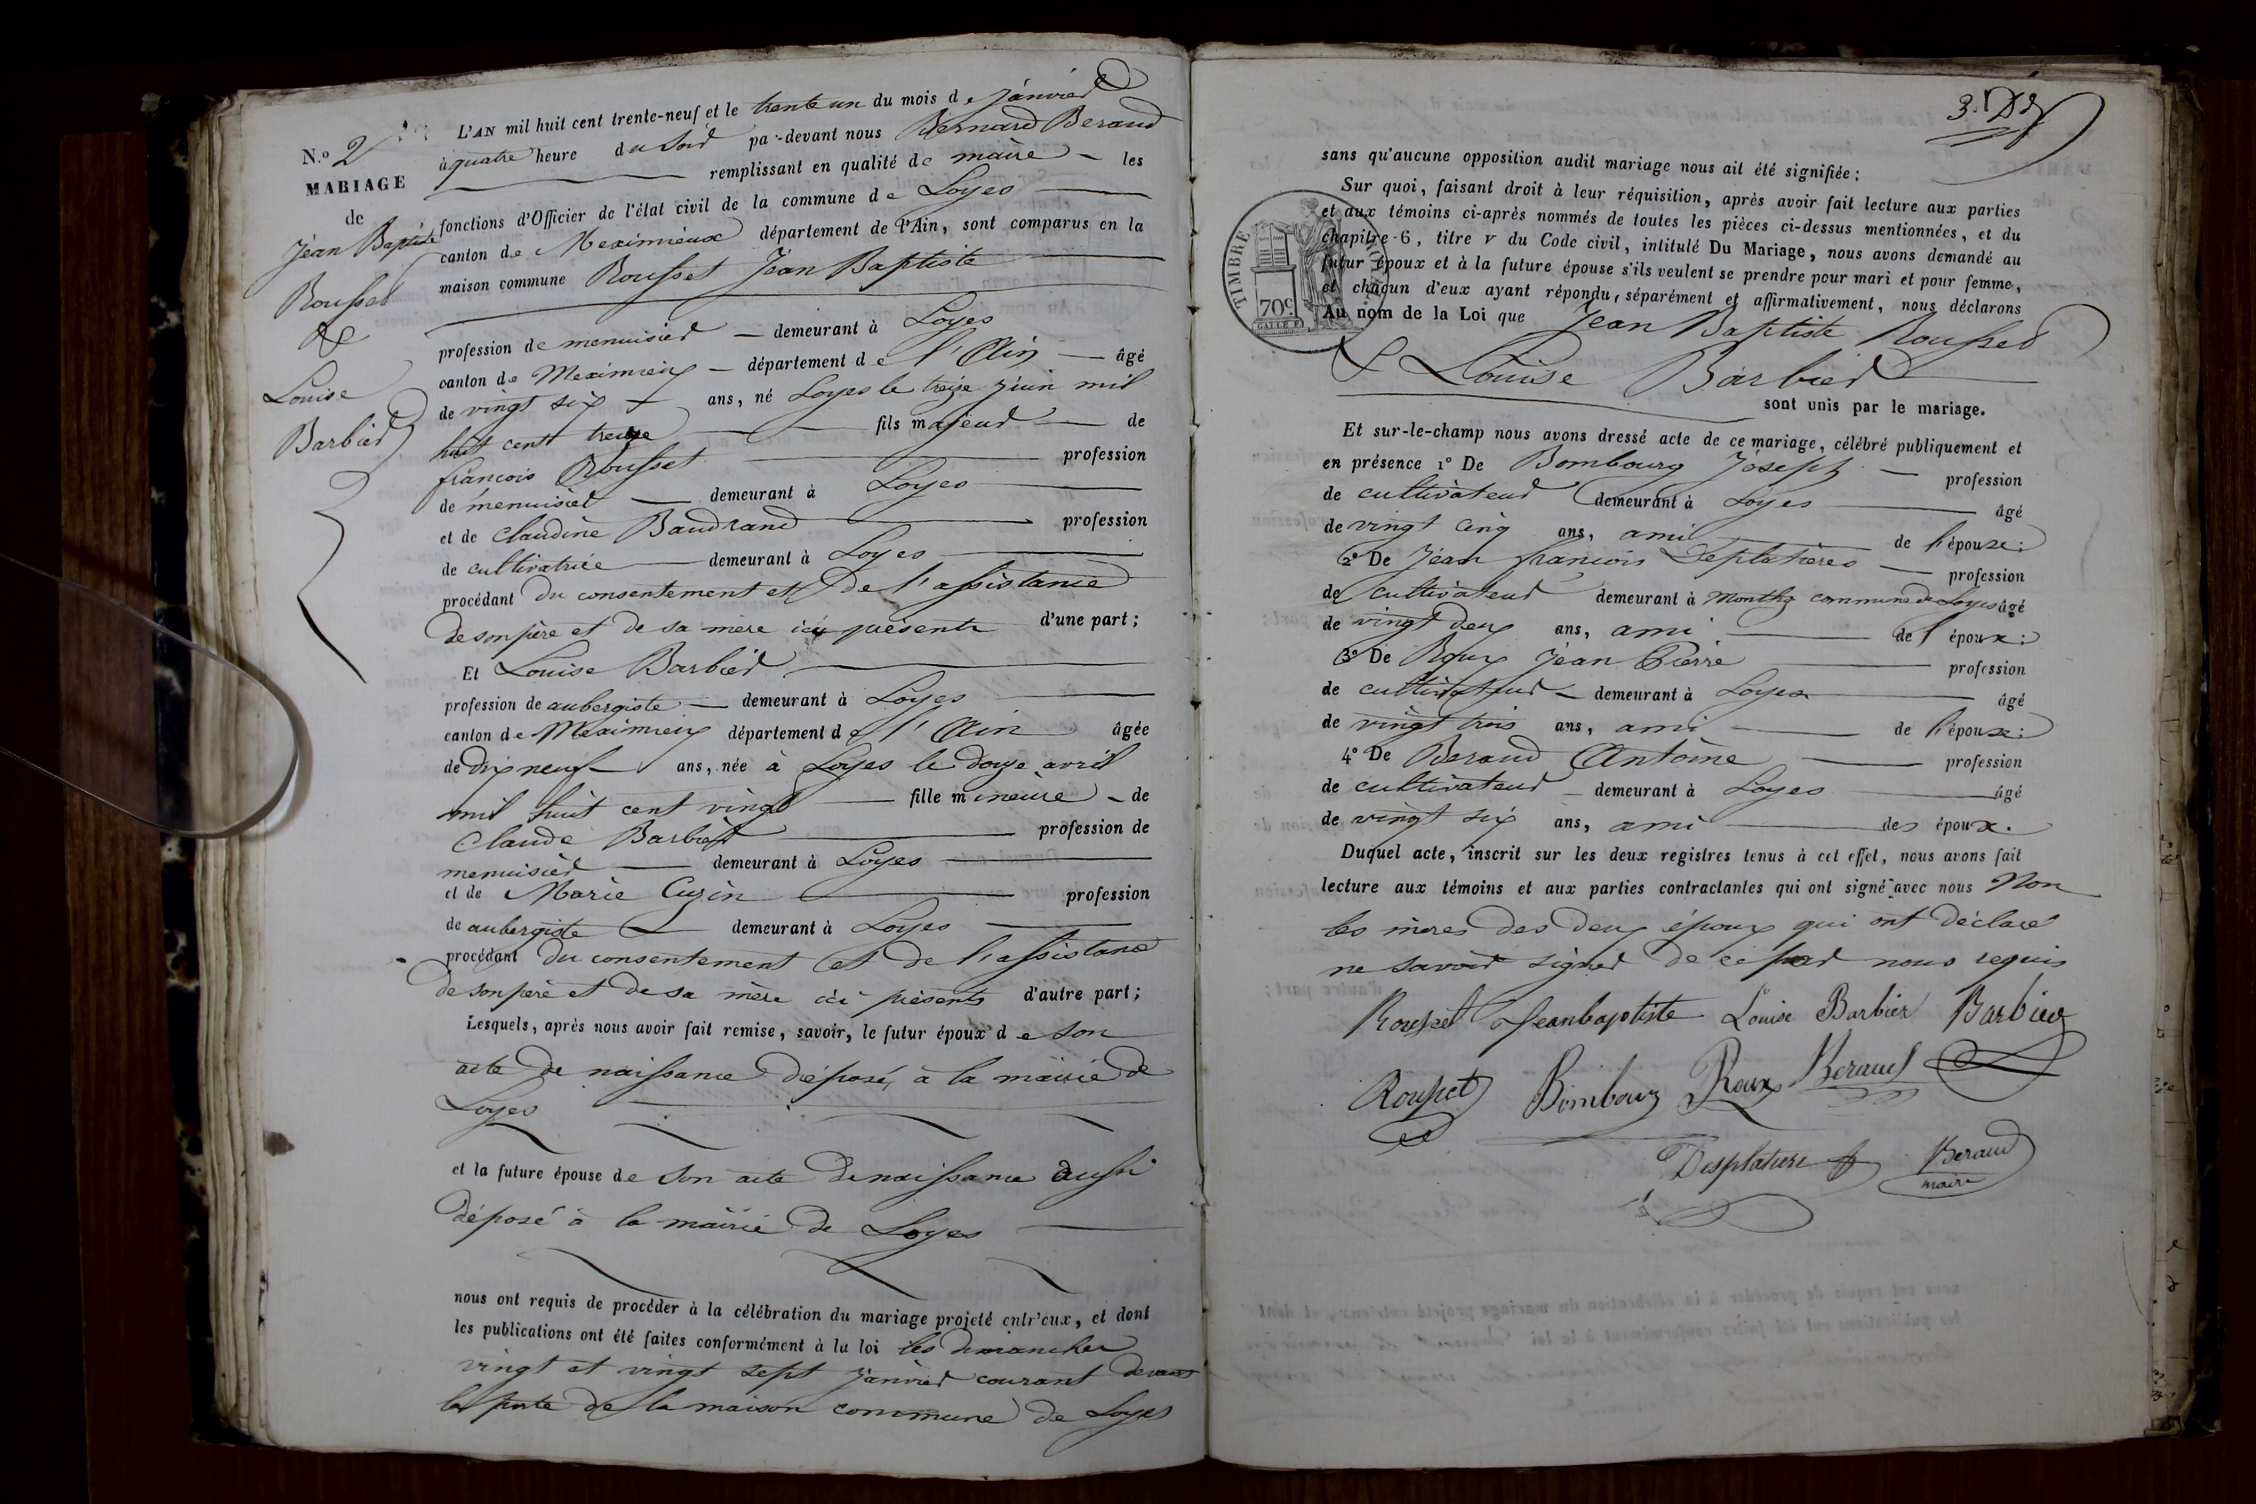 N.º 2
MARIAGE
de
Jean Baptiste
Rousset
&
Louise
Barbier
L'AN mil huit cent trente-neuf et le trente un du mois de janvier
à quatre heure du Soir par-devant nous Bernard Beraud
remplissant en qualité de maire les
fonctions d'Officier de l'état civil de la commune de Loyes
canton de Meximieux département de l'Ain, sont comparus en la
maison commune Rousset Jean Baptiste
profession de menuisier demeurant à Loyes
canton de Meximieux département de l'Ain âgé
de vingt six ans, né Loyes le treize juin mil
huit cent treize fils majeur de
françois Rousset profession
de menuisier demeurant à Loyes
et de Claudine Baudrand profession
de cultivatrice demeurant à Loyes
procédant du consentement et de l'assistance
de son père et de sa mere ici présents d'une part;
Et Louise Barbier
profession de aubergiste demeurant à Loyes
canton de Meximieux département de l'Ain âgée
de dix neuf ans, née à Loyes le douze avril
mil huit cent vingt fille mineure de
Claude Barbier profession de
menuisier demeurant à Loyes
et de Marie Cuzin profession
de aubergiste demeurant à Loyes
procédant du consentement et de l'assistance
de son père et de sa mère ici présents d'autre part;
Lesquels, après nous avoir fait remise, savoir, le futur époux de son
acte de naissance déposé à la mairie de
Loyes
et la future épouse de son acte de naissance aussi
déposé à la mairie de Loyes
nous ont requis de procéder à la célébration du mariage projeté entr'eux, et dont
les publications ont été faites conformément à la loi les dimanches
vingt et vingt sept janvier courant devant
la porte de la maison commune de Loyes
sans qu'aucune opposition audit mariage nous ait été signifiée;
Sur quoi, faisant droit à leur réquisition, après avoir fait lecture aux parties
et aux témoins ci-après nommés de toutes les pièces ci-dessus mentionnées, et du
chapitre 6, titre v du Code civil, intitulé Du Mariage, nous avons demandé au
futur époux et à la future épouse s'ils veulent se prendre pour mari et pour femme,
et chacun d'eux ayant répondu, séparément et affirmativement, nous déclarons
Au nom de la Loi que Jean Baptiste Rousset
& Louise Barbier
sont unis par le mariage.
TIMBRE
70c.
Et sur-le-champ nous avons dressé acte de ce mariage, célébré publiquement et
en présence 1º De Bombourg Joseph profession
de cultivateur demeurant à Loyes âgé
de vingt cinq ans, ami de l'épouse:
2º De Jean françois Desplatières profession
de cultivateur demeurant à Monthoz commune de Loyes âgé
de vingt deux ans, ami de l'époux:
3º De Roux Jean Pierre profession
de cultivateur demeurant à Loyes âgé
de vingt trois ans, ami de l'époux:
4º De Beraud Antoine profession
de cultivateur demeurant à Loyes âgé
de vingt six ans, ami des époux.
Duquel acte, inscrit sur les deux registres tenus à cet effet, nous avons fait
lecture aux témoins et aux parties contractantes qui ont signé avec nous Non
les mères des deux époux qui ont déclaré
ne savoir signer de ce par nous requis
Rousset Jeanbaptiste Louise Barbier Barbier
Rousset Bombourg Roux Beraud
Desplatiere Beraud
maire